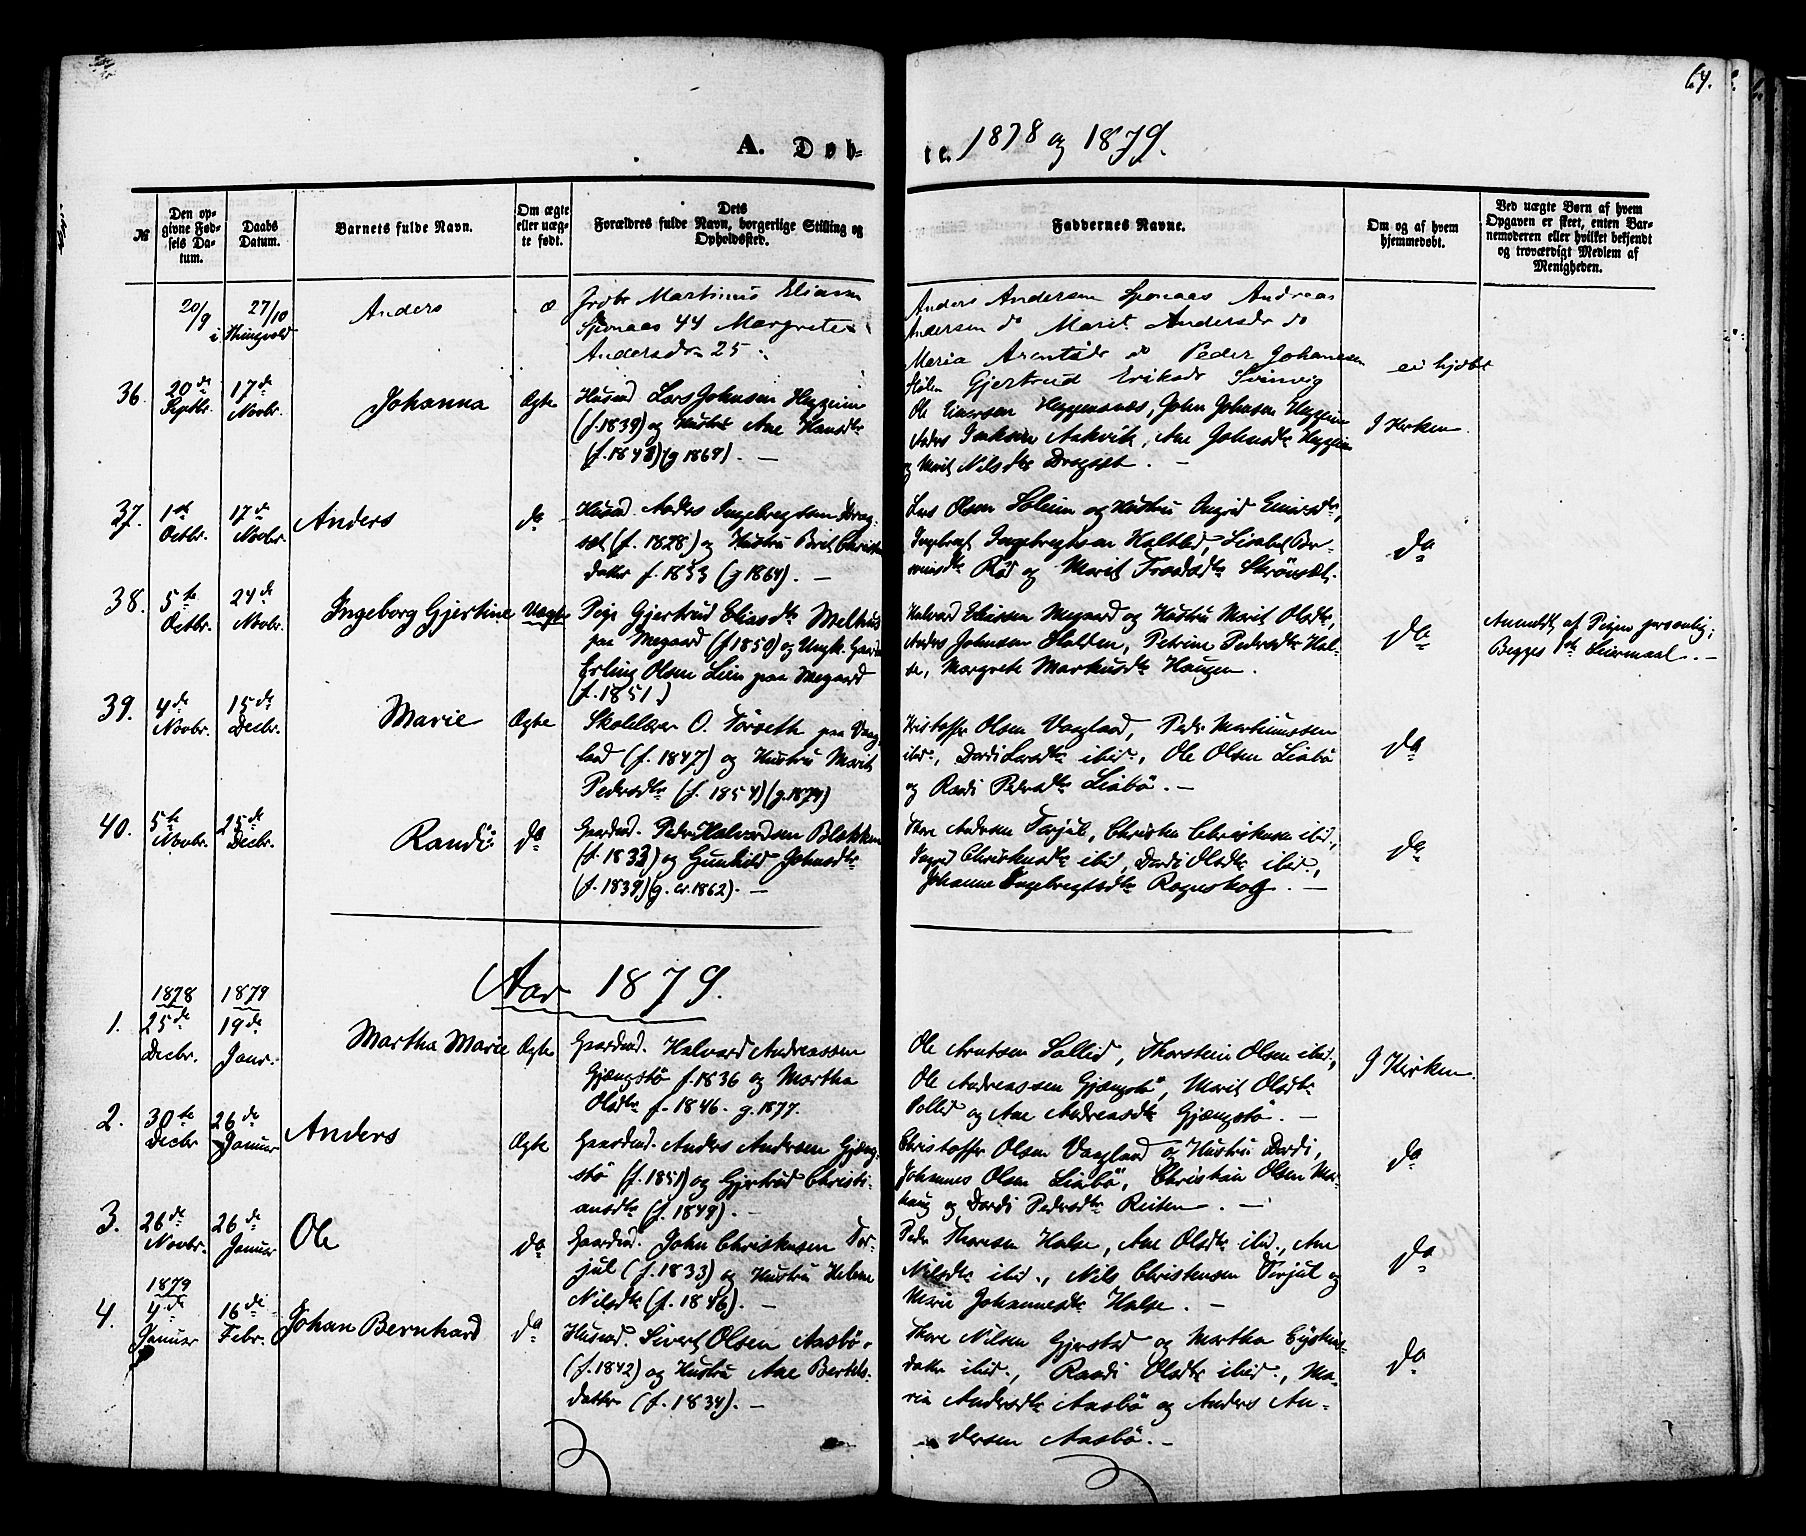 64.
A. Døb-
te. 1878 og 1879.
№
Den op-
givne Fød-
sels Da-
tum.
Daabs
Datum.
Barnets fulde Navn.
Om ægte
eller uæg-
te født.
Dets
Forældres fulde Navn, borgerlige Stilling og
Opholdssted.
Faddernes Navne.
Om og af hvem
hjemmedøbt.
Ved uægte Børn af hvem
Opgaven er skeet, enten Bar-
nemoderen eller hvilket bekjendt
og troværdigt Medlem af
Menigheden.
20/9 27/10
i Thingvold
Anders
æ
Martinus Eliasen
Sponaas 44 Margrete
Andersdr 25
Anders Andersen Sponaas Andreas
Andersen do Marit Andersdr do
Maria Arentsdr do Peder Johannesen
Gjertrud Eriksdr Svinvig
ei hjdbt
36. 20de Septbr. 17de Novbr.
Johanna
Ægte
Husmd Lars Johnsen Heggeim
(f. 1839) og Hustru Ane Hansdtr
(f. 1843) (g 1869). —
Ole Einersen Heggemsnæs, John Johnsen Heggeim
Anders Aakvik, Ane Johnsdtr Heggeim
og Marit Nilsdtr Dragset. —
I Kirken
37. 1ste Octbr. 17de Novbr.
Anders
do
Husmd. Anders Ingebregtsen Drag-
set (f. 1828) og Hustru Brit Christens
datter f. 1833 (g 1864). —
Lars Olsen Soleim og Hustru Ingrid Einersdtr,
Ingebregt Ingebregtsen Haltlid, Lisabet
Rød og Marit
do
38. 5te Octbr. 24de Novbr.
Ingeborg Gjertine
Uægte
Pige Gjertrud Eliasdtr Melhus
paa Megaard (f 1850) og Ungk.
Erling Olsen Lien paa Megaard
(f. 1851.)
Halvard Eliassen Megaard og Hustru Marit Olsdtr,
Anders Johnsen Holden, Petrine Pedersdtr Hal-
se, Margrete Markusdtr Haugen.
do
Anmeldt af Pigen personlig;
Begges 1ste Leiermaal. —
39. 4de Novbr. 15de Decbr.
Marie
Ægte
Skolelærer O. Torveth paa Vaag-
land (f. 1847) og Hustru Marit
Pedersdtr (f. 1854) (g. 1874)
Kristoffer Olsen Vaagland, Peder Martinussen
ibid., Dordi Larsdtr ibid., Ole Olsen Liabø
og Randi Pedersdtr Liabø. —
do
40. 5te Novbr. 25de Decbr.
Randi
do
Gaardmd. Peder Halvardsen Blekken
(f. 1833) og Gunhild Johnsdtr
(f. 1839) (g. ca. 1862). —
Thore Andersen Torjul, Christen Christensen ibid.,
Ingrid Christensdtr ibid, Dordi Olsdtr ibid.,
Johanna Ingebregtsdtr Rognskog. —
Aar 1879.
1878 1879
1. 25de Decbr. 19de Janr.
Martha Marie
Ægte
Gaardmd. Halvard Andreassen
Gjængstø f. 1836 og Martha
Olsdtr f. 1846. g. 1877.
Ole Arntsen Sollid, Thorstein Olsen ibid.,
Ole Andreassen Gjængstø, Marit Olsdtr
Sollid og Ane Andreasdtr Gjængstø. —
I Kirken
2. 30te Decbr 26de Januar
Anders
Ægte
Gaardmd. Anders Andersen Gjæng-
stø (f. 1851) og Gjertrud Christi-
ansdtr (f. 1849). —
Christoffer Olsen Vaagland og Hustru Dordi,
Johannes Olsen Liabø, Christian Olsen Mo-
haug og Dordi Pedersdtr Reiten. —
do
3. 26de Novbr. 26de Januar
Ole
do
Gaardmd. John Christensen Tor-
jul (f. 1833) og Hustru Helene
Nilsdtr (f. 1846). —
Peder Thoresen Halse, Ane Olsdtr ibid., Ane
Nilsdtr ibid., Nils Christensen Torjul og
Marie Johannesdtr Halse. —
do
1879
4. 4de Januar 16de Febr.
Johan Bernhard
do
Husmd. Sivert Olsen Aasbø
(f. 1842) og Hustru Ane Bertels-
datter (f. 1834). —
Thore Nilsen Gjerstad og Martha Eystens-
datter ibid., Randi Olsdtr ibid., Ma-
ria Andersdtr Aasbø og Anders An-
dersen Aasbø. —
do